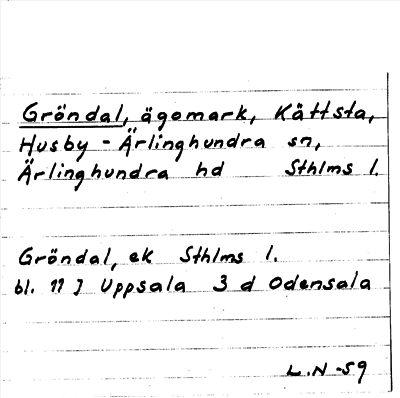 Gröndal, ägomark, Kättsta,
Husby - Ärlinghundra sn,
Ärlinghundra hd Sthlms l.
Gröndal, ek Sthlms l.
bl. 11 J Uppsala 3 d Odensala
L.N -59